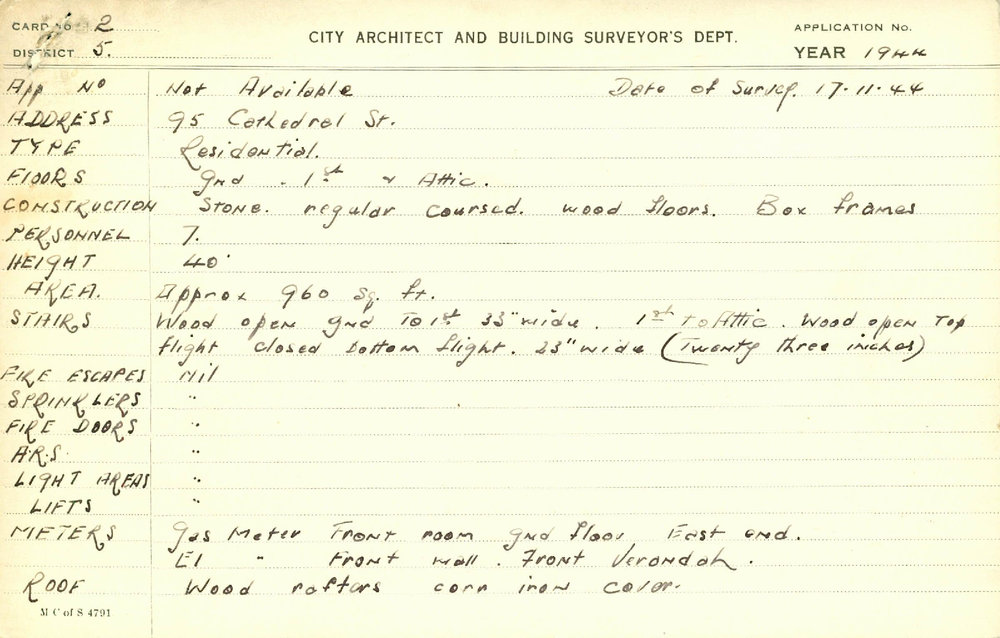 CARD No 2
DISTRICT 5.
CITY ARCHITECT AND BUILDING SURVEYOR'S DEPT.
APPLICATION No.
YEAR 1944
App No Not Available Date of Survey. 17.11.44
ADDRESS 95 Cathedral St.
TYPE Residential.
FLOORS gnd . 1st & Attic.
CONSTRUCTION Stone. regular coursed. wood floors. Box frames
PERSONNEL 7.
HEIGHT 40'
AREA. Approx 960 sq. ft.
STAIRS Wood open gnd To 1st 33" wide. 1st to Attic. Wood open Top
flight closed bottom flight. 23" wide (Twenty three inches)
FIRE ESCAPES Nil
SPRINKLERS "
FIRE DOORS "
A.R.S. "
LIGHT AREAS "
LIFTS "
METERS Gas Meter Front room gnd floor East end.
El " Front wall. Front Verandah.
ROOF Wood rafters corr iron cover.
M C of S 4791